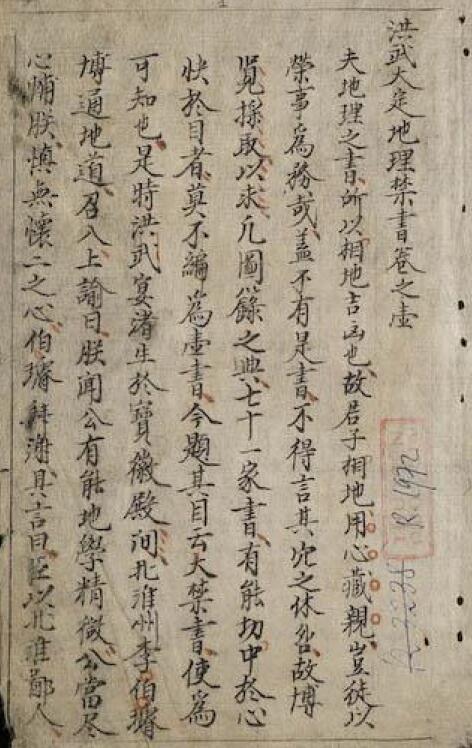 洪武大定地理禁書卷之壹
夫地理之書所以相地吉凶也故君子相地用心藏親豈徒以
榮事為務哉蓋不有是書不得言其穴之休咎故博
覽採取以求凡圖籙之典七十一家書有能切中於心
快於目者莫不編為壹書今題其目云大禁書使為
可知也是時洪武宴渚生於寶徽殿间北淮州李伯璿
博通地道召入上諭曰朕聞公有能地學精微公當尽
心輔朕慎無懷二之心伯璿拜謝具言曰臣以北淮鄙人
R.1992